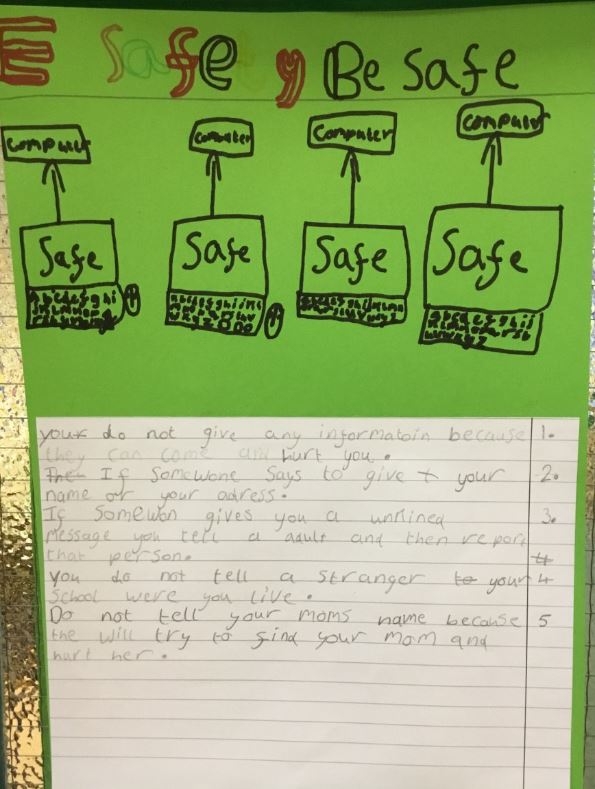 E Safety Be safe
Computer Computer Computer Computer
Safe Safe Safe Safe
your do not give any informatoin because 1.
they can come and hurt you.
Then If Somewone Says to give your 2.
name or your adress.
If Somewon gives you a unkined 3.
message you tell a adult and then report
that person. 4
you do not tell a stranger to your 4
School were you live.
Do not tell your moms name because 5
the will try to find your mom and
hurt her.